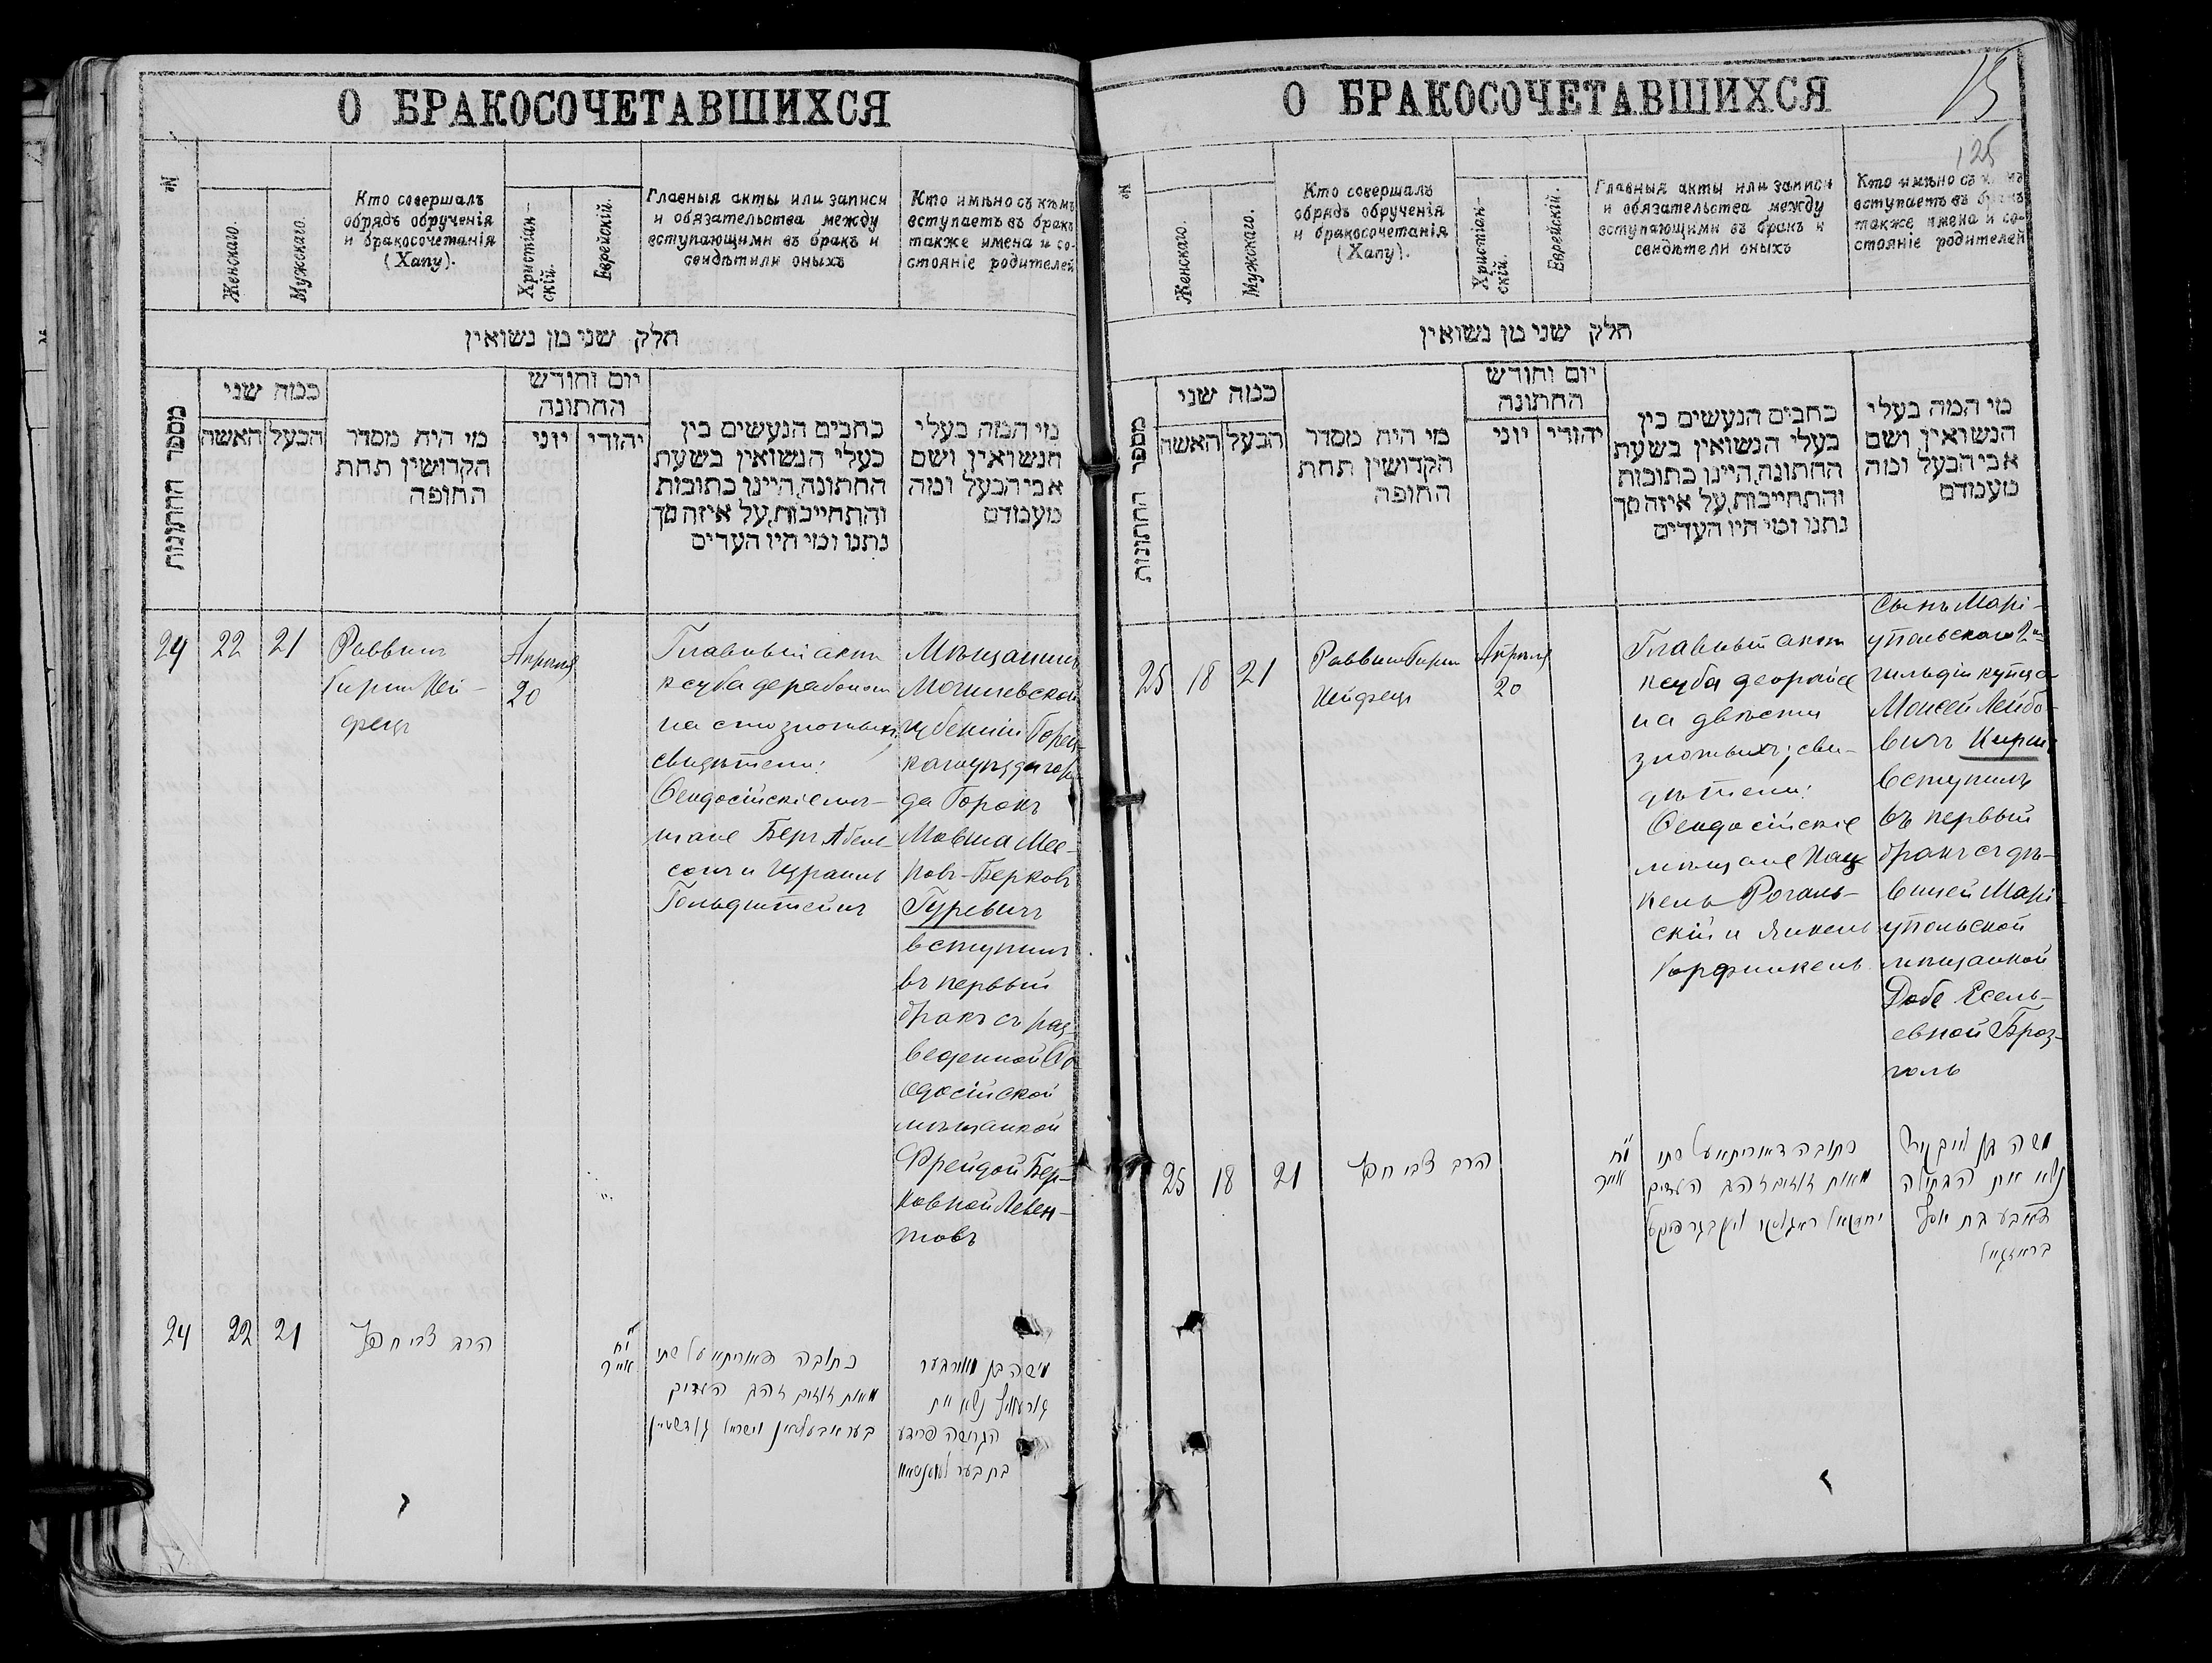 О БРАКОСОЧЕТАВШИХСЯ
№
Женскаго.
Мужскаго.
Кто совершалъ
обрядъ обрученія
и бракосочетанія
(Хапу).
Христіан-
скій.
Еврейскій.
Главныя акты или записи
и обязательства между
вступающими въ бракъ и
свидѣтили оныхъ
Кто имѣно съ кѣмъ
вступаетъ въ бракъ
также имена и со-
стояніе родителей
חלק שני מן נשואין
מספר החתונות
כמה שני
הבעל
האשה
מי היה מסדר
הקדושין תחת
החופה
יום וחודש
החתונה
יהודי
יוני
כתבים הנעשים בין
בעלי הנשואין בשעת
החתונה, היינו כתובות
והתחייבות, על איזה סך
נתנו ומי היו העדים
מי המה בעלי
הנשואין ושם
אבי הבעל ומה
מעמדם
24
22
21
Раввинъ
Гирш Хей-
фецъ
Апрѣля
20
Главный актъ
ксуба
на сто злотыхъ,
свидѣтели:
Ѳеодосійскіе мѣ-
щане Беръ Абель-
сонъ и Израиль
Гольдштейнъ
Мѣщанинъ
Могилевской
губерніи Горец-
каго уѣзда горо-
да Горокъ
Мовша Мее-
ровъ-Берковъ
Гуревичъ
вступилъ
въ первый
бракъ съ раз-
веденной Ѳе-
одосійской
мѣщанкой
Фрейдой Бер-
ковной Левен-
товъ
24
22
21
הרב צבי חפץ
ח"י
אייר
כתובה דאוריתא על שתי
מאות זוזים זהב העדים
גורעוויץ נשא את
הגרושה פרידע
О БРАКОСОЧЕТАВШИХСЯ
15
125
№
Женскаго.
Мужскаго.
Кто совершалъ
обрядъ обрученія
и бракосочетанія
(Хапу).
Христіан-
скій.
Еврейскій.
Главныя акты или записи
и обязательства между
вступающими въ бракъ и
свидѣтели оныхъ
Кто имѣно съ
вступаетъ въ бракъ
также имена и со-
стояніе родителей
חלק שני מן נשואין
מספר החתונות
כמה שני
הבעל
האשה
מי היה מסדר
הקדושין תחת
החופה
יום וחודש
החתונה
יהודי
יוני
כתבים הנעשים בין
בעלי הנשואין בשעת
החתונה, היינו כתובות
והתחייבות, על איזה סך
נתנו ומי היו העדים
מי המה בעלי
הנשואין ושם
אבי הבעל ומה
מעמדם
25
18
21
Раввин Гирш
Хейфецъ
Апрѣля
20
Главный актъ
ксуба
на двѣсти
злотыхъ; сви-
дѣтели:
Ѳеодосійскіе
мѣщане Хац-
кель Рогаль-
скій и Янкель
Гарфинкель
Сынъ Марі-
упольскаго 2й
гильдіи купца
Моисей Лейбо-
вичъ
вступилъ
въ первый
бракъ съ дѣ-
вицей Марі-
упольской
мѣщанкой
Добе Есель-
евной Браз-
голь
25
18
21
הרב צבי חפץ
ח"י
אייר
כתובה דאוריתא על שתי
מאות זוזים זהב העדים
נשא את הבתולה